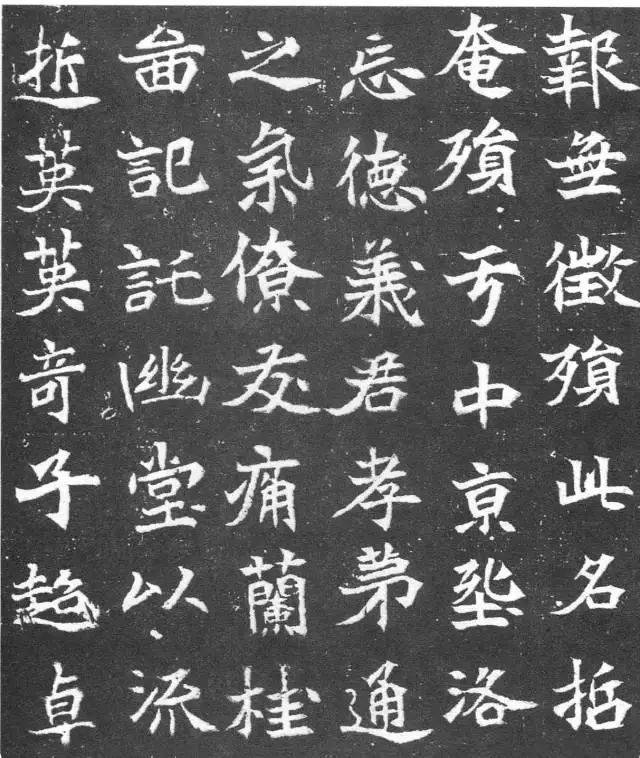 報無徵殞此名括
奄殞亏中亰洛
忘德義君孝弟通
之氣僚友痛蘭桂
啚記託幽堂以流
逝英英奇子超卓